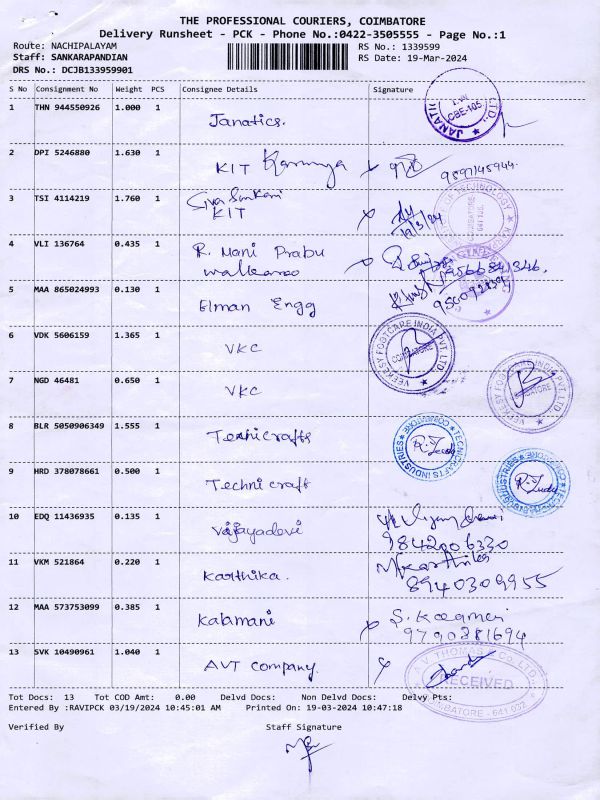 THE PROFESSIONAL COURIERS, COIMBATORE
Delivery Runsheet - PCK - Phone No.:0422-3505555 - Page No.:1
Route: NACHIPALAYAM RS No.: 1339599
Staff: SANKARAPANDIAN RS Date: 19-Mar-2024
DRS No.: DCJB133959901
S No Consignment No Weight PCS Consignee Details Signature
1 THN 944550926 1.000 1 Janatics. CBE-105 JANATI LTD.
2 DPI 5246880 1.630 1 KIT Karunya
3 TSI 4114219 1.760 1 Siva Sankari
KIT 19/3/24
OF TECHNOLOGY
4 VLI 136764 0.435 1 R. Mani Prabu
walkaroo
5 MAA 865024993 0.130 1 Elman Engg
6 VDK 5606159 1.365 1 VKC VEEKESY FOOTCARE INDIA PVT. LTD COIMBATORE
7 NGD 46481 0.650 1 VKC VEEKESY FOOTCARE INDIA PVT. LTD COIMBATORE
8 BLR 5050906349 1.555 1 Technicrafts TECHNICRAFTS INDUSTRIES COIMBATORE
9 HRD 378078661 0.500 1 Techni craft
10 EDQ 11436935 0.135 1 Vijayadevi
9842006330
11 VKM 521864 0.220 1 Karthika. M Karthika
8940309955
12 MAA 573753099 0.385 1 Kalamani
9790381694
13 SVK 10490961 1.040 1 AVT Company. A.V. THOMAS & Co. LTD. RECEIVED COIMBATORE - 641 032
Tot Docs: 13 Tot COD Amt: 0.00 Delvd Docs: Non Delvd Docs: Delvy Pts:
Entered By :RAVIPCK 03/19/2024 10:45:01 AM Printed On: 19-03-2024 10:47:18
Verified By Staff Signature